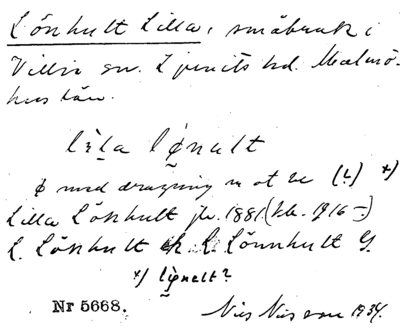 Lönhult Lilla, småbruk i
Villie sn. Ljunits hd. Malmö-
hus län.
lìla lø̀nalt
ø med dragning mot œ (!) *)
Lilla Lönhult jb. 1881 (kb. 1916 –)
L. Lönhult ek. L. Lönnhult G.
*) lø̀nelt?
Nr 5668.
Nils Nilsson 1934.